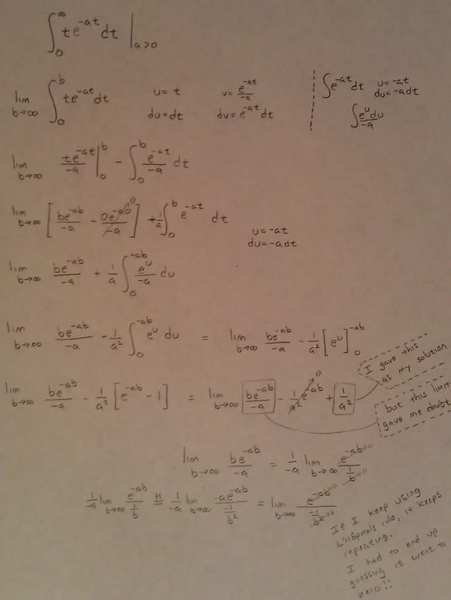 ∫_0^∞ te^{-at} dt |_{a>0}
lim b→∞ ∫_0^b te^{-at} dt   u = t   v = e^{-at}/-a
du = dt   du = e^{-at} dt
∫e^{-at} dt   u = -at
du = -a dt
∫ e^u du/-a
lim b→∞ te^{-at}/-a |_0^b - ∫_0^b e^{-at}/-a dt
lim b→∞ [be^{-ab}/-a - 0e^{-a0}/-a] + 1/a ∫_0^b e^{-at} dt
u = -at
du = -a dt
lim b→∞ be^{-ab}/-a + 1/a ∫_0^{-ab} e^u/-a du
lim b→∞ be^{-ab}/-a - 1/a² ∫_0^{-ab} e^u du = lim b→∞ be^{-ab}/-a - 1/a² [e^u]_0^{-ab}
lim b→∞ be^{-ab}/-a - 1/a² [e^{-ab} - 1] = lim b→∞ be^{-ab}/-a - 1/a² e^{-ab} + 1/a²
I gave this
as my solution
but this limit
gave me doubt
lim b→∞ be^{-ab}/-a = 1/-a lim b→∞ e^{-ab}/(1/b)
1/-a lim b→∞ e^{-ab}/(1/b) H= 1/-a lim b→∞ -ae^{-ab}/(-1/b²) = lim b→∞ e^{-ab}/(-1/b²)
If I keep using
l'hospitals rule, it keeps
repeating.
I had to end up
guessing it went to
zero!!